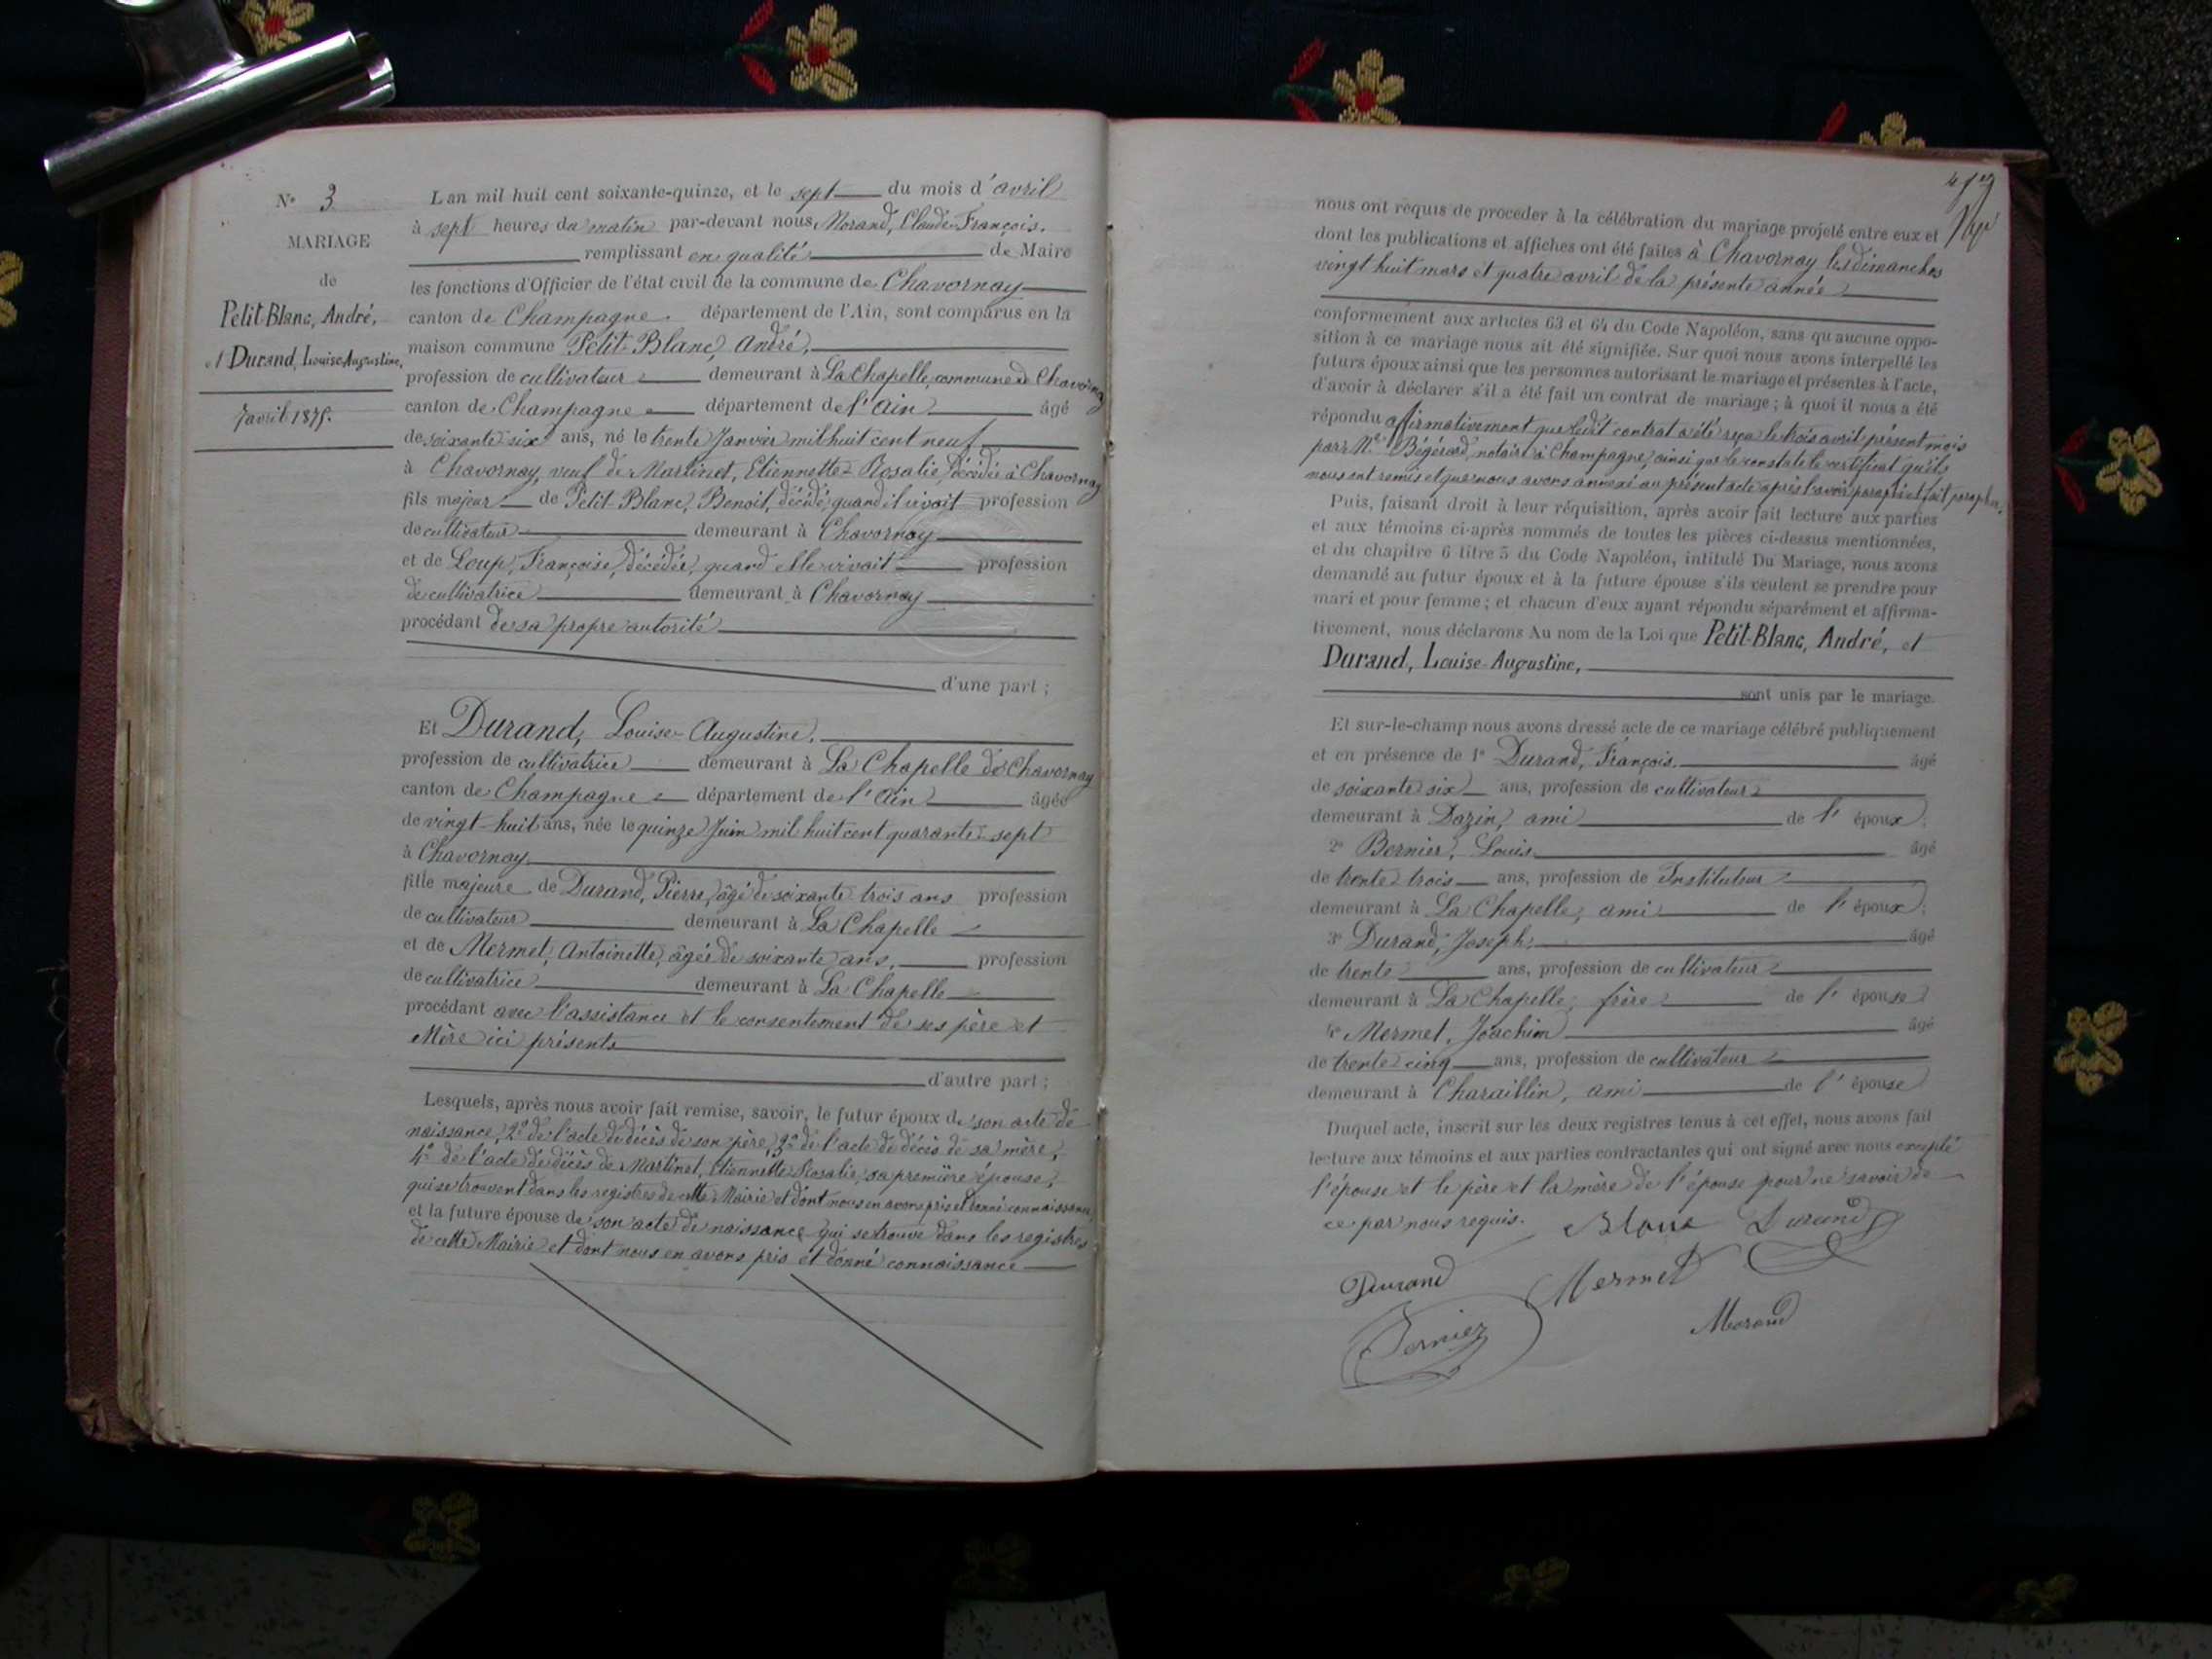 N° 3
MARIAGE
de
Petit-Blanc, André,
et Durand, Louise-Augustine,
7 avril 1875.
L'an mil huit cent soixante-quinze, et le sept du mois d'avril
à sept heures du matin par-devant nous, Morand, Claude-François,
remplissant en qualité de Maire
les fonctions d'Officier de l'état civil de la commune de Chavornay
canton de Champagne département de l'Ain, sont comparus en la
maison commune Petit-Blanc, André,
profession de cultivateur demeurant à La Chapelle, commune de Chavornay
canton de Champagne département de l'Ain âgé
de soixante six ans, né le trente Janvier mil huit cent neuf
à Chavornay, veuf de Martinet, Etiennette-Rosalie, décédée à Chavornay
fils majeur de Petit-Blanc, Benoit, décédé, quand il vivait profession
de cultivateur demeurant à Chavornay
et de Loup, Françoise, décédée, quand elle vivait profession
de cultivatrice demeurant à Chavornay
procédant de sa propre autorité
d'une part ;
Et Durand, Louise-Augustine,
profession de cultivatrice demeurant à La Chapelle de Chavornay
canton de Champagne département de l'Ain âgée
de vingt-huit ans, née le quinze Juin mil huit cent quarante-sept
à Chavornay
fille majeure de Durand, Pierre, âgé de soixante trois ans profession
de cultivateur demeurant à La Chapelle
et de Mermet, Antoinette, âgée de soixante ans, profession
de cultivatrice demeurant à La Chapelle
procédant avec l'assistance et le consentement de ses père et
Mère ici présents
d'autre part ;
Lesquels, après nous avoir fait remise, savoir, le futur époux de son acte de
naissance, 2° de l'acte de décès de son père, 3° de l'acte de décès de sa mère,
4° de l'acte de décès de Martinet, Etiennette-Rosalie, sa première épouse,
qui se trouvent dans les registres de cette Mairie et dont nous en avons pris et donné connaissance,
et la future épouse de son acte de naissance qui se trouve dans les registres
de cette Mairie et dont nous en avons pris et donné connaissance
nous ont requis de procéder à la célébration du mariage projeté entre eux et
dont les publications et affiches ont été faites à Chavornay les dimanches
vingt huit mars et quatre avril de la présente année
conformément aux articles 63 et 64 du Code Napoléon, sans qu'aucune oppo-
sition à ce mariage nous ait été signifiée. Sur quoi nous avons interpellé les
futurs époux ainsi que les personnes autorisant le mariage et présentes à l'acte,
d'avoir à déclarer s'il a été fait un contrat de mariage ; à quoi il nous a été
répondu affirmativement que ledit contrat a été reçu le trois avril présent mois
par Me Bégérard, notaire à Champagne, ainsi que le constate le certificat qu'ils
nous ont remis et que nous avons annexé au présent acte après l'avoir paraphé et fait parapher.
Puis, faisant droit à leur réquisition, après avoir fait lecture aux parties
et aux témoins ci-après nommés de toutes les pièces ci-dessus mentionnées,
et du chapitre 6 titre 5 du Code Napoléon, intitulé Du Mariage, nous avons
demandé au futur époux et à la future épouse s'ils veulent se prendre pour
mari et pour femme ; et chacun d'eux ayant répondu séparément et affirma-
tivement, nous déclarons Au nom de la Loi que Petit-Blanc, André, et
Durand, Louise-Augustine,
sont unis par le mariage.
Et sur-le-champ nous avons dressé acte de ce mariage célébré publiquement
et en présence de 1° Durand, François, âgé
de soixante six ans, profession de cultivateur
demeurant à Dazin, ami de l'époux ;
2° Bernier, Louis âgé
de trente trois ans, profession de Instituteur
demeurant à La Chapelle, ami de l'époux ;
3° Durand, Joseph, âgé
de trente ans, profession de cultivateur
demeurant à La Chapelle, frère de l'épouse
4° Mermet, Joachim âgé
de trente cinq ans, profession de cultivateur
demeurant à Charaillin, ami de l'épouse
Duquel acte, inscrit sur les deux registres tenus à cet effet, nous avons fait
lecture aux témoins et aux parties contractantes qui ont signé avec nous excepté
l'épouse et le père et la mère de l'épouse pour ne savoir de
ce par nous requis. Durand
Durand Mermet
Bernier Morand